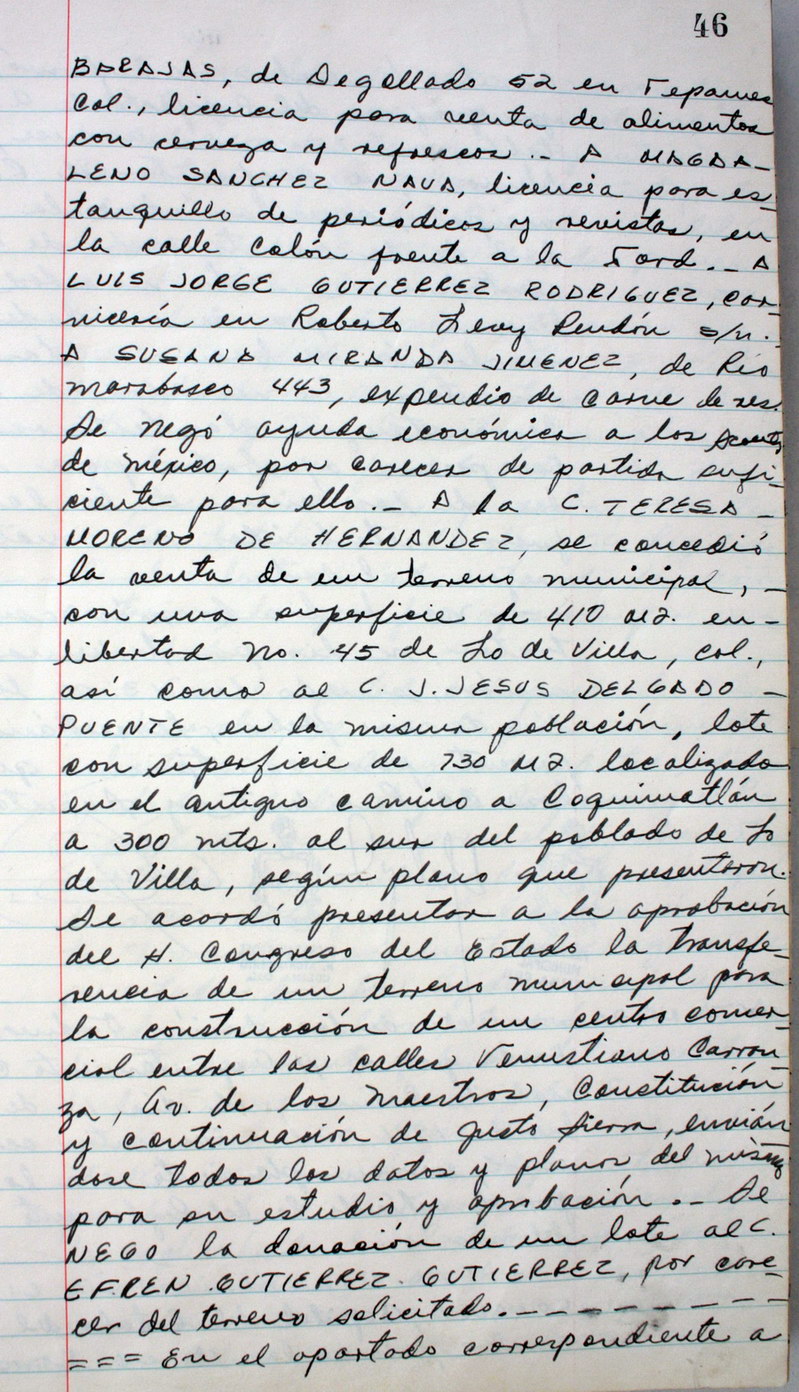 46
BARAJAS, de Degollado 52 en Tepames
Col., licencia para venta de alimentos
con cerveza y refrescos.- A MAGDA-
LENO SANCHEZ NAVA, licencia para es-
tanquillo de periódicos y revistas, en
la calle Colón frente a la Ford.- A
LUIS JORGE GUTIERREZ RODRIGUEZ, car-
nicería en Roberto Levy Rendón s/n.-
A SUSANA MIRANDA JIMENEZ, de Río
marabasco 443, expendio de carne de res.
Se negó ayuda económica a los Scouts
de México, por carecer de partida sufi-
ciente para ello.- A la C. TERESA -
MORENO DE HERNANDEZ, se concedió
la venta de un terreno municipal, -
con una superficie de 410 M2. en-
libertad No. 45 de Lo de Villa, Col.,
así como al C. J. JESUS DELGADO -
PUENTE en la misma población, lote
con superficie de 730 M2. localizado
en el antiguo camino a Coquimatlán
a 300 mts. al sur del poblado de Lo
de Villa, según plano que presentaron.
Se acordó presentar a la aprobación
del H. Congreso del Estado la transfe-
rencia de un terreno municipal para
la construcción de un centro comer-
cial entre las calles Venustiano Carran-
za, Av. de los Maestros, Constitución
y continuación de Justo Sierra, envián
dose todos los datos y planos del mismo
para su estudio y aprobación.- Se
NEGO la donación de un lote al C.
EFREN GUTIERREZ GUTIERREZ, por care-
cer del terreno solicitado.- - - - - - - -
= = = En el apartado correspondiente a